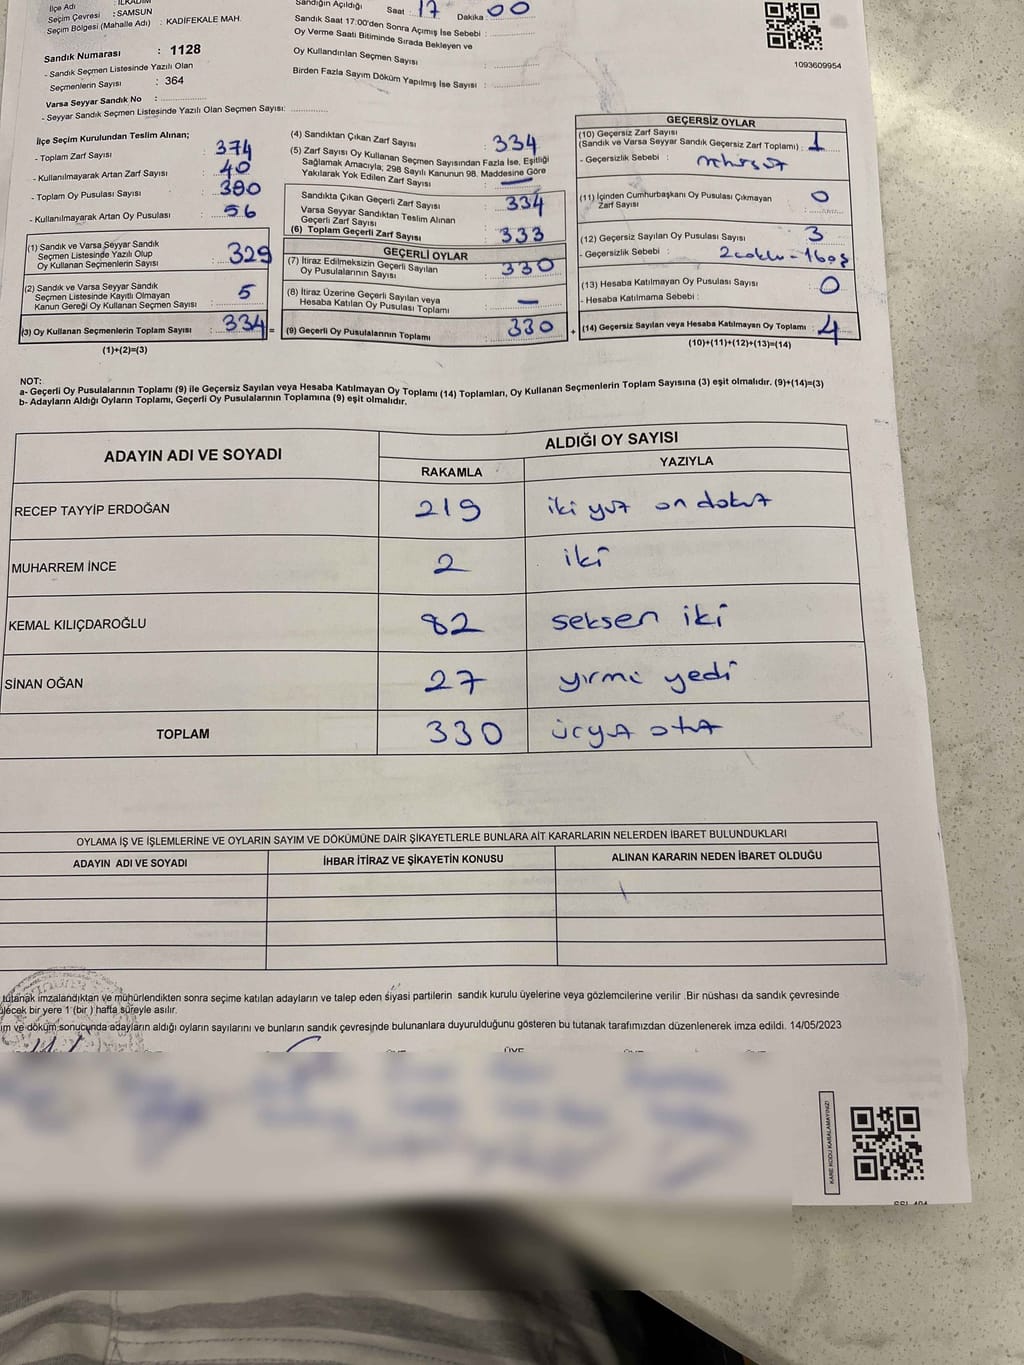 İlçe Adı : İLKADIM
Seçim Çevresi : SAMSUN
Seçim Bölgesi (Mahalle Adı) : KADİFEKALE MAH.
Sandık Numarası : 1128
- Sandık Seçmen Listesinde Yazılı Olan
Seçmenlerin Sayısı : 364
Varsa Seyyar Sandık No :
- Seyyar Sandık Seçmen Listesinde Yazılı Olan Seçmen Sayısı:
Sandığın Açıldığı Saat : 17 Dakika : 00
Sandık Saat 17:00'den Sonra Açımış İse Sebebi :
Oy Verme Saati Bitiminde Sırada Bekleyen ve
Oy Kullandırılan Seçmen Sayısı :
Birden Fazla Sayım Döküm Yapılmış İse Sayısı :
1093609954
İlçe Seçim Kurulundan Teslim Alınan;
- Toplam Zarf Sayısı : 374
- Kullanılmayarak Artan Zarf Sayısı : 40
- Toplam Oy Pusulası Sayısı : 380
- Kullanılmayarak Artan Oy Pusulası : 56
(1) Sandık ve Varsa Seyyar Sandık
Seçmen Listesinde Yazılı Olup
Oy Kullanan Seçmenlerin Sayısı : 329
(2) Sandık ve Varsa Seyyar Sandık
Seçmen Listesinde Kayıtlı Olmayan
Kanun Gereği Oy Kullanan Seçmen Sayısı : 5
(3) Oy Kullanan Seçmenlerin Toplam Sayısı : 334 =
(1)+(2)=(3)
(4) Sandıktan Çıkan Zarf Sayısı : 334
(5) Zarf Sayısı Oy Kullanan Seçmen Sayısından Fazla İse, Eşitliği
Sağlamak Amacıyla, 298 Sayılı Kanunun 98. Maddesine Göre
Yakılarak Yok Edilen Zarf Sayısı : —
Sandıkta Çıkan Geçerli Zarf Sayısı : 334
Varsa Seyyar Sandıktan Teslim Alınan
Geçerli Zarf Sayısı
(6) Toplam Geçerli Zarf Sayısı : 333
GEÇERLİ OYLAR
(7) İtiraz Edilmeksizin Geçerli Sayılan
Oy Pusulalarının Sayısı : 330
(8) İtiraz Üzerine Geçerli Sayılan veya
Hesaba Katılan Oy Pusulası Toplamı : —
(9) Geçerli Oy Pusulalarının Toplamı : 330 +
GEÇERSİZ OYLAR
(10) Geçersiz Zarf Sayısı
(Sandık ve Varsa Seyyar Sandık Geçersiz Zarf Toplamı) : 1
- Geçersizlik Sebebi : mühürsüz
(11) İçinden Cumhurbaşkanı Oy Pusulası Çıkmayan
Zarf Sayısı : 0
(12) Geçersiz Sayılan Oy Pusulası Sayısı : 3
- Geçersizlik Sebebi : 2 çoklu - 1 boş
(13) Hesaba Katılmayan Oy Pusulası Sayısı : 0
- Hesaba Katılmama Sebebi :
(14) Geçersiz Sayılan veya Hesaba Katılmayan Oy Toplamı : 4
(10)+(11)+(12)+(13)=(14)
NOT:
a- Geçerli Oy Pusulalarının Toplamı (9) ile Geçersiz Sayılan veya Hesaba Katılmayan Oy Toplamı (14) Toplamları, Oy Kullanan Seçmenlerin Toplam Sayısına (3) eşit olmalıdır. (9)+(14)=(3)
b- Adayların Aldığı Oyların Toplamı, Geçerli Oy Pusulalarının Toplamına (9) eşit olmalıdır.
ADAYIN ADI VE SOYADI
ALDIĞI OY SAYISI
RAKAMLA YAZIYLA
RECEP TAYYİP ERDOĞAN 219 iki yüz on dokuz
MUHARREM İNCE 2 iki
KEMAL KILIÇDAROĞLU 82 seksen iki
SİNAN OĞAN 27 yirmi yedi
TOPLAM 330 üçyüz otuz
OYLAMA İŞ VE İŞLEMLERİNE VE OYLARIN SAYIM VE DÖKÜMÜNE DAİR ŞİKAYETLERLE BUNLARA AİT KARARLARIN NELERDEN İBARET BULUNDUKLARI
ADAYIN ADI VE SOYADI İHBAR İTİRAZ VE ŞİKAYETİN KONUSU ALINAN KARARIN NEDEN İBARET OLDUĞU
tutanak imzalandıktan ve mühürlendikten sonra seçime katılan adayların ve talep eden siyasi partilerin sandık kurulu üyelerine veya gözlemcilerine verilir .Bir nüshası da sandık çevresinde
bir yere 1 (bir ) hafta süreyle asılır.
ım ve döküm sonucunda adayların aldığı oyların sayılarını ve bunların sandık çevresinde bulunanlara duyurulduğunu gösteren bu tutanak tarafımızdan düzenlenerek imza edildi. 14/05/2023
KARE KODU KARALAMAYINIZ!